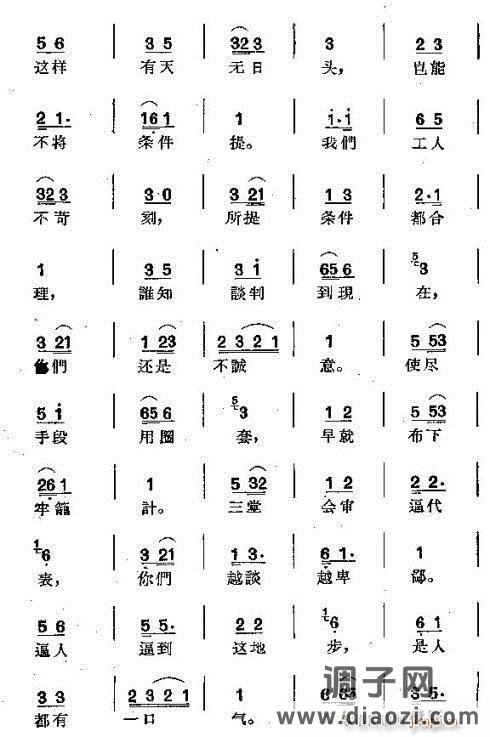 5 6 | 3 5 | 32 3 | 3 | 2 3
这样 有天 无日 头, 岂能
2 1· | 161 | 1 | i·i | 6 5
不将 条件 提。 我們 工人
32 3 | 3 0 | 3 21 | 1 3 | 2·1
不苛 刻, 所提 条件 都合
1 | 3 5 | 3 i | 65 6 | 5 3
理, 誰知 談判 到現 在,
3 21 | 1 23 | 2 3 2 1 | 1 | 5 53
你們 还是 不誠 意。 使尽
5 i | 65 6 | 5 3 | 1 2 | 5 53
手段 用圈 套, 早就 布下
26 1 | 1 | 5 32 | 1 2 | 2 2·
牢籠 計。 三堂 会审 逼代
1 6 | 3 21 | 1 3· | 6 1· | 1
表, 你們 越談 越卑 鄙。
5 6 | 5 5· | 2 2 | 1 6 | 6 1
逼人 逼到 这地 步, 是人
3 3 | 2 3 2 1 | 1
都有 一口 气。
调子网
www.diaozi.com